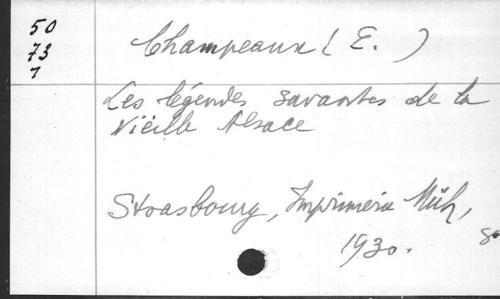 50
73
7
Champeaux (E. )
Les légendes savantes de la
Vieille Alsace
Strasbourg, Imprimerie Müh,
1930. 8°